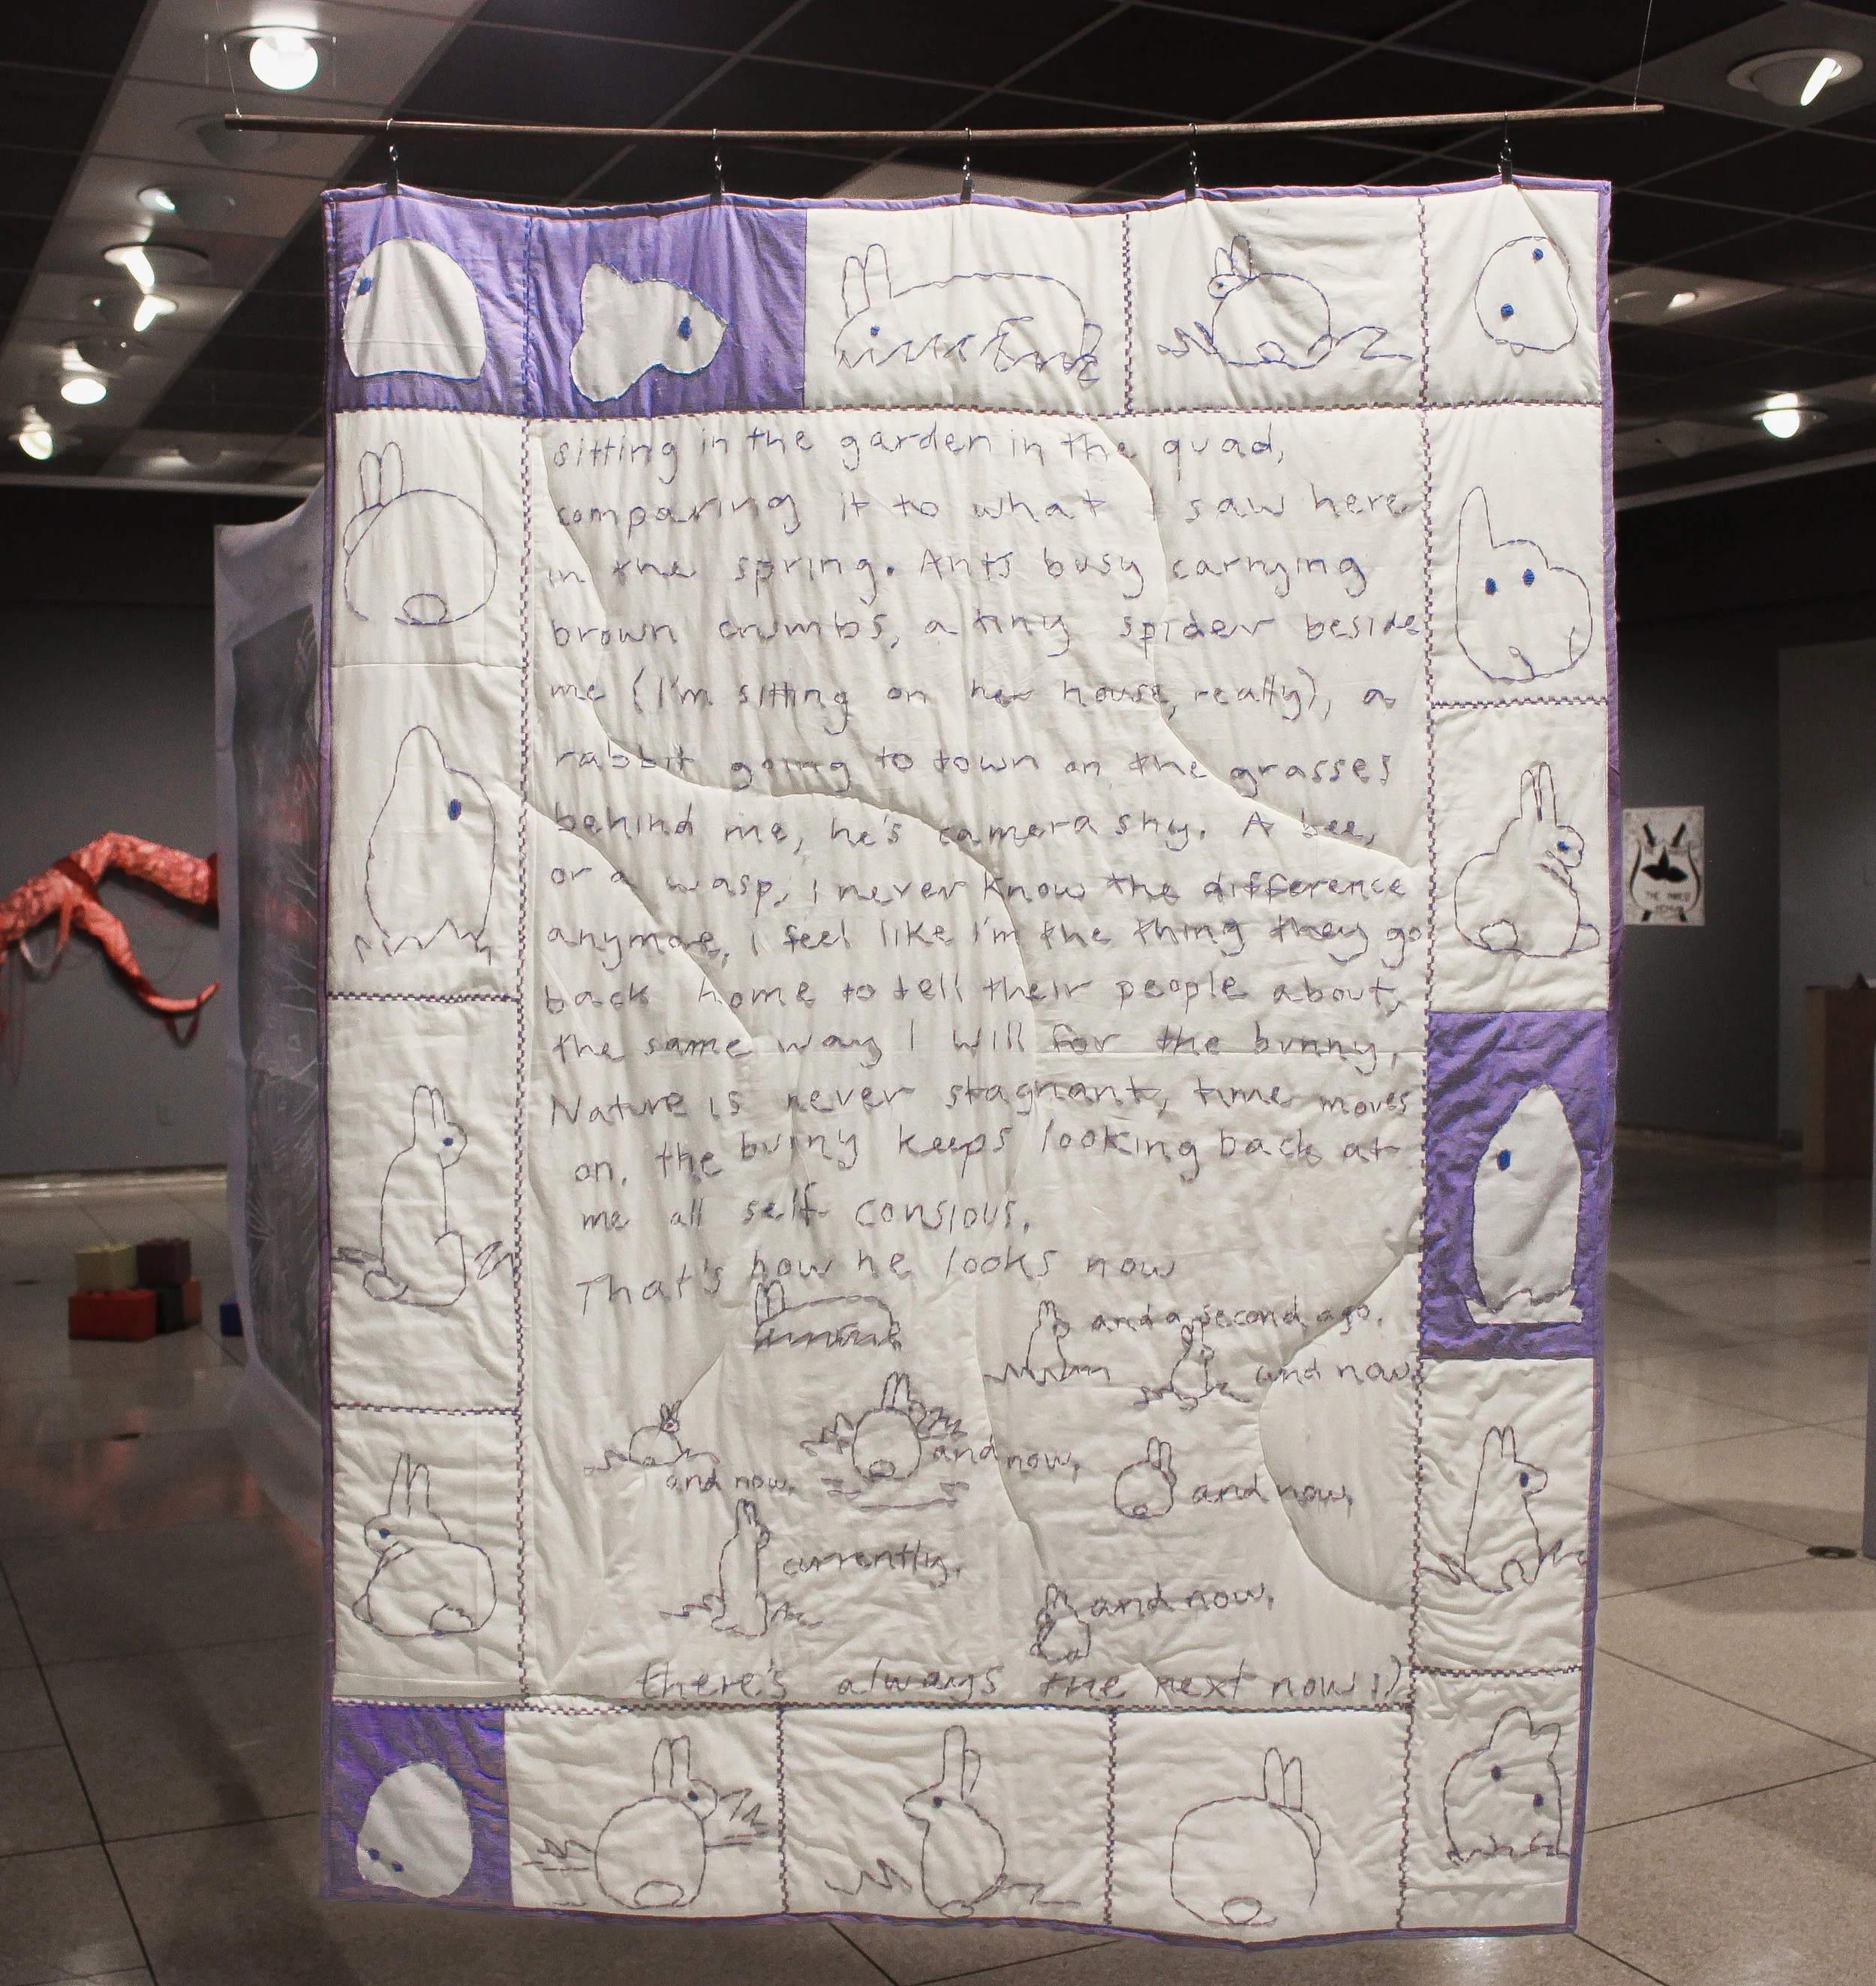 sitting in the garden in the quad,
comparing it to what I saw here
in the spring. Ants busy carrying
brown crumbs, a tiny spider beside
me (I'm sitting on her house, really), a
rabbit going to town on the grasses
behind me, he's camera shy. A bee,
or a wasp, i never know the difference
anymore, i feel like i'm the thing they go
back home to tell their people about,
the same way I will for the bunny,
Nature is never stagnant, time moves
on. the bunny keeps looking back at
me all self consious.
That's how he looks now
and a second ago.
and now,
and now,
and now,
and now,
currently,
and now,
there's always the next now :)
THE